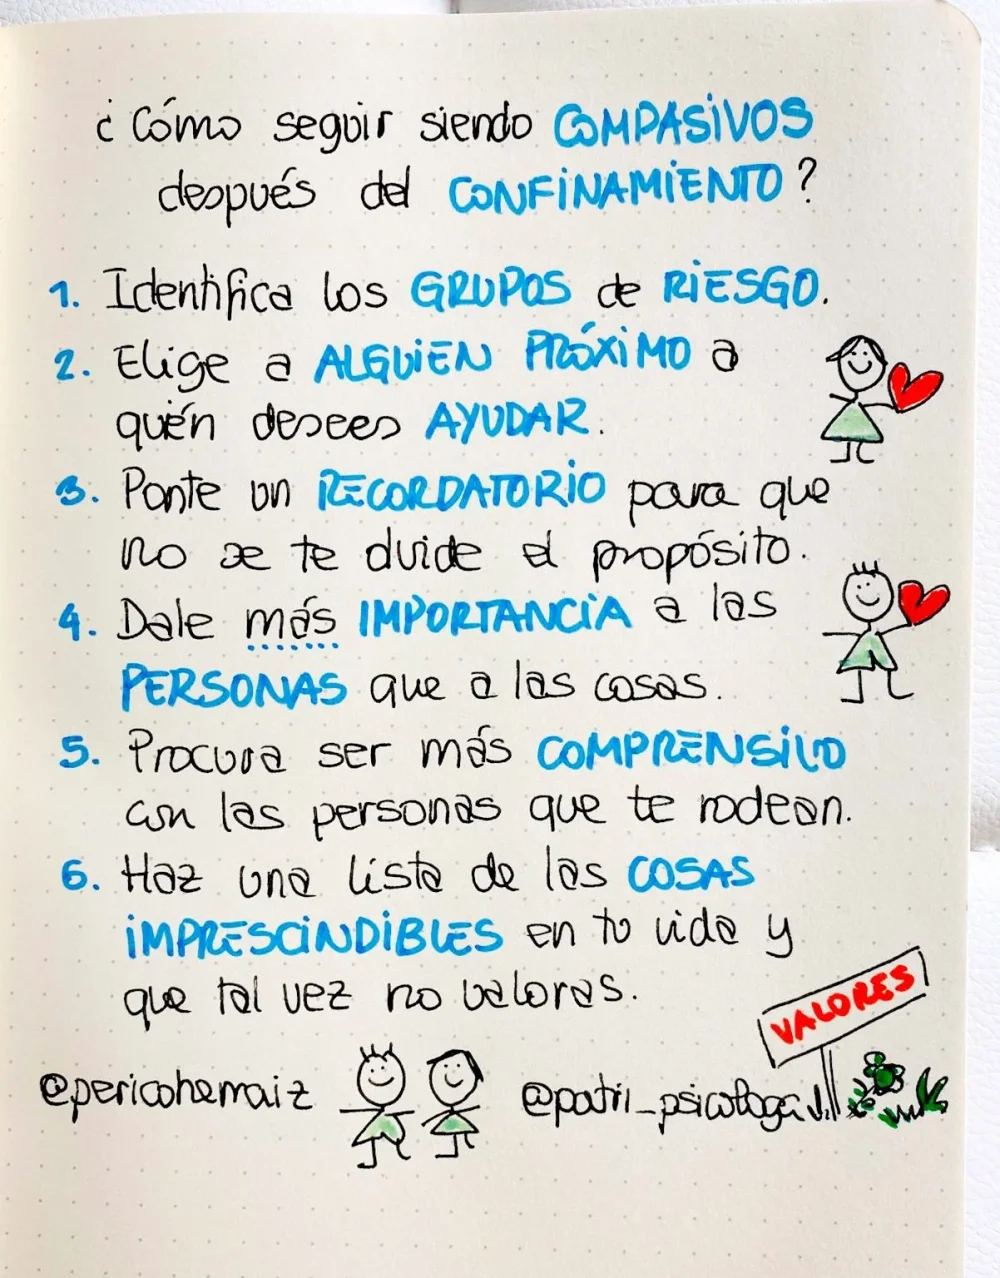 ¿Cómo seguir siendo COMPASiVOS
después del CONFiNAMiENTO?
1. Identifica los GRUPOS de RiESGO.
2. Elige a ALGUiEN PRÓXiMO a
quién desees AYUDAR.
3. Ponte un RECORDATORiO para que
no se te olvide el propósito.
4. Dale más IMPORTANCiA a las
PERSONAS que a las cosas.
5. Procura ser más COMPRENSiVO
con las personas que te rodean.
6. Haz una lista de las COSAS
iMPRESCiNDiBLES en tu vida y
que tal vez no valoras.
VALORES
@pericoherraiz
@patri_psicologa